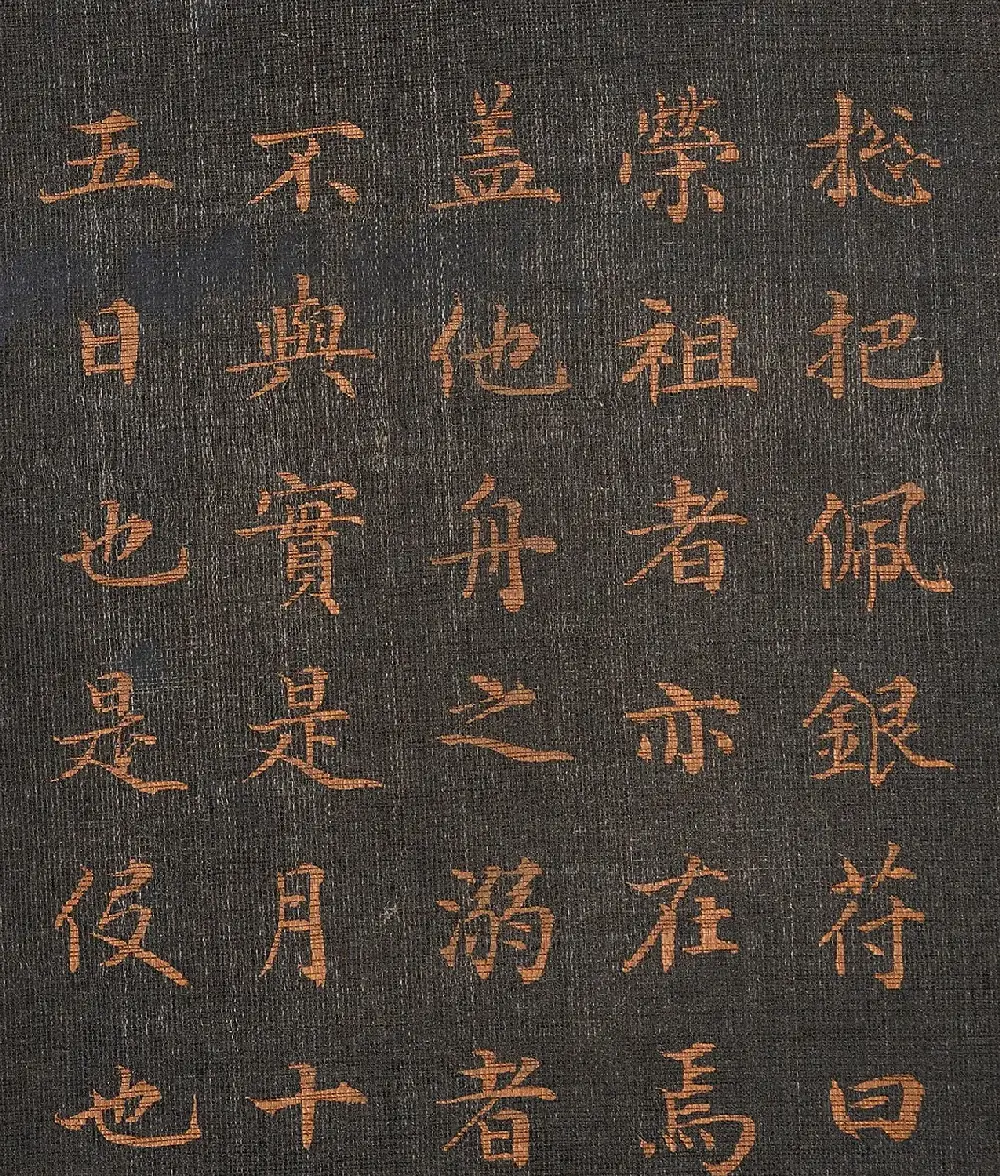 揔把佩銀苻曰
榮祖者亦在焉
盖他舟之溺者
不與實是月十
五日也是役也